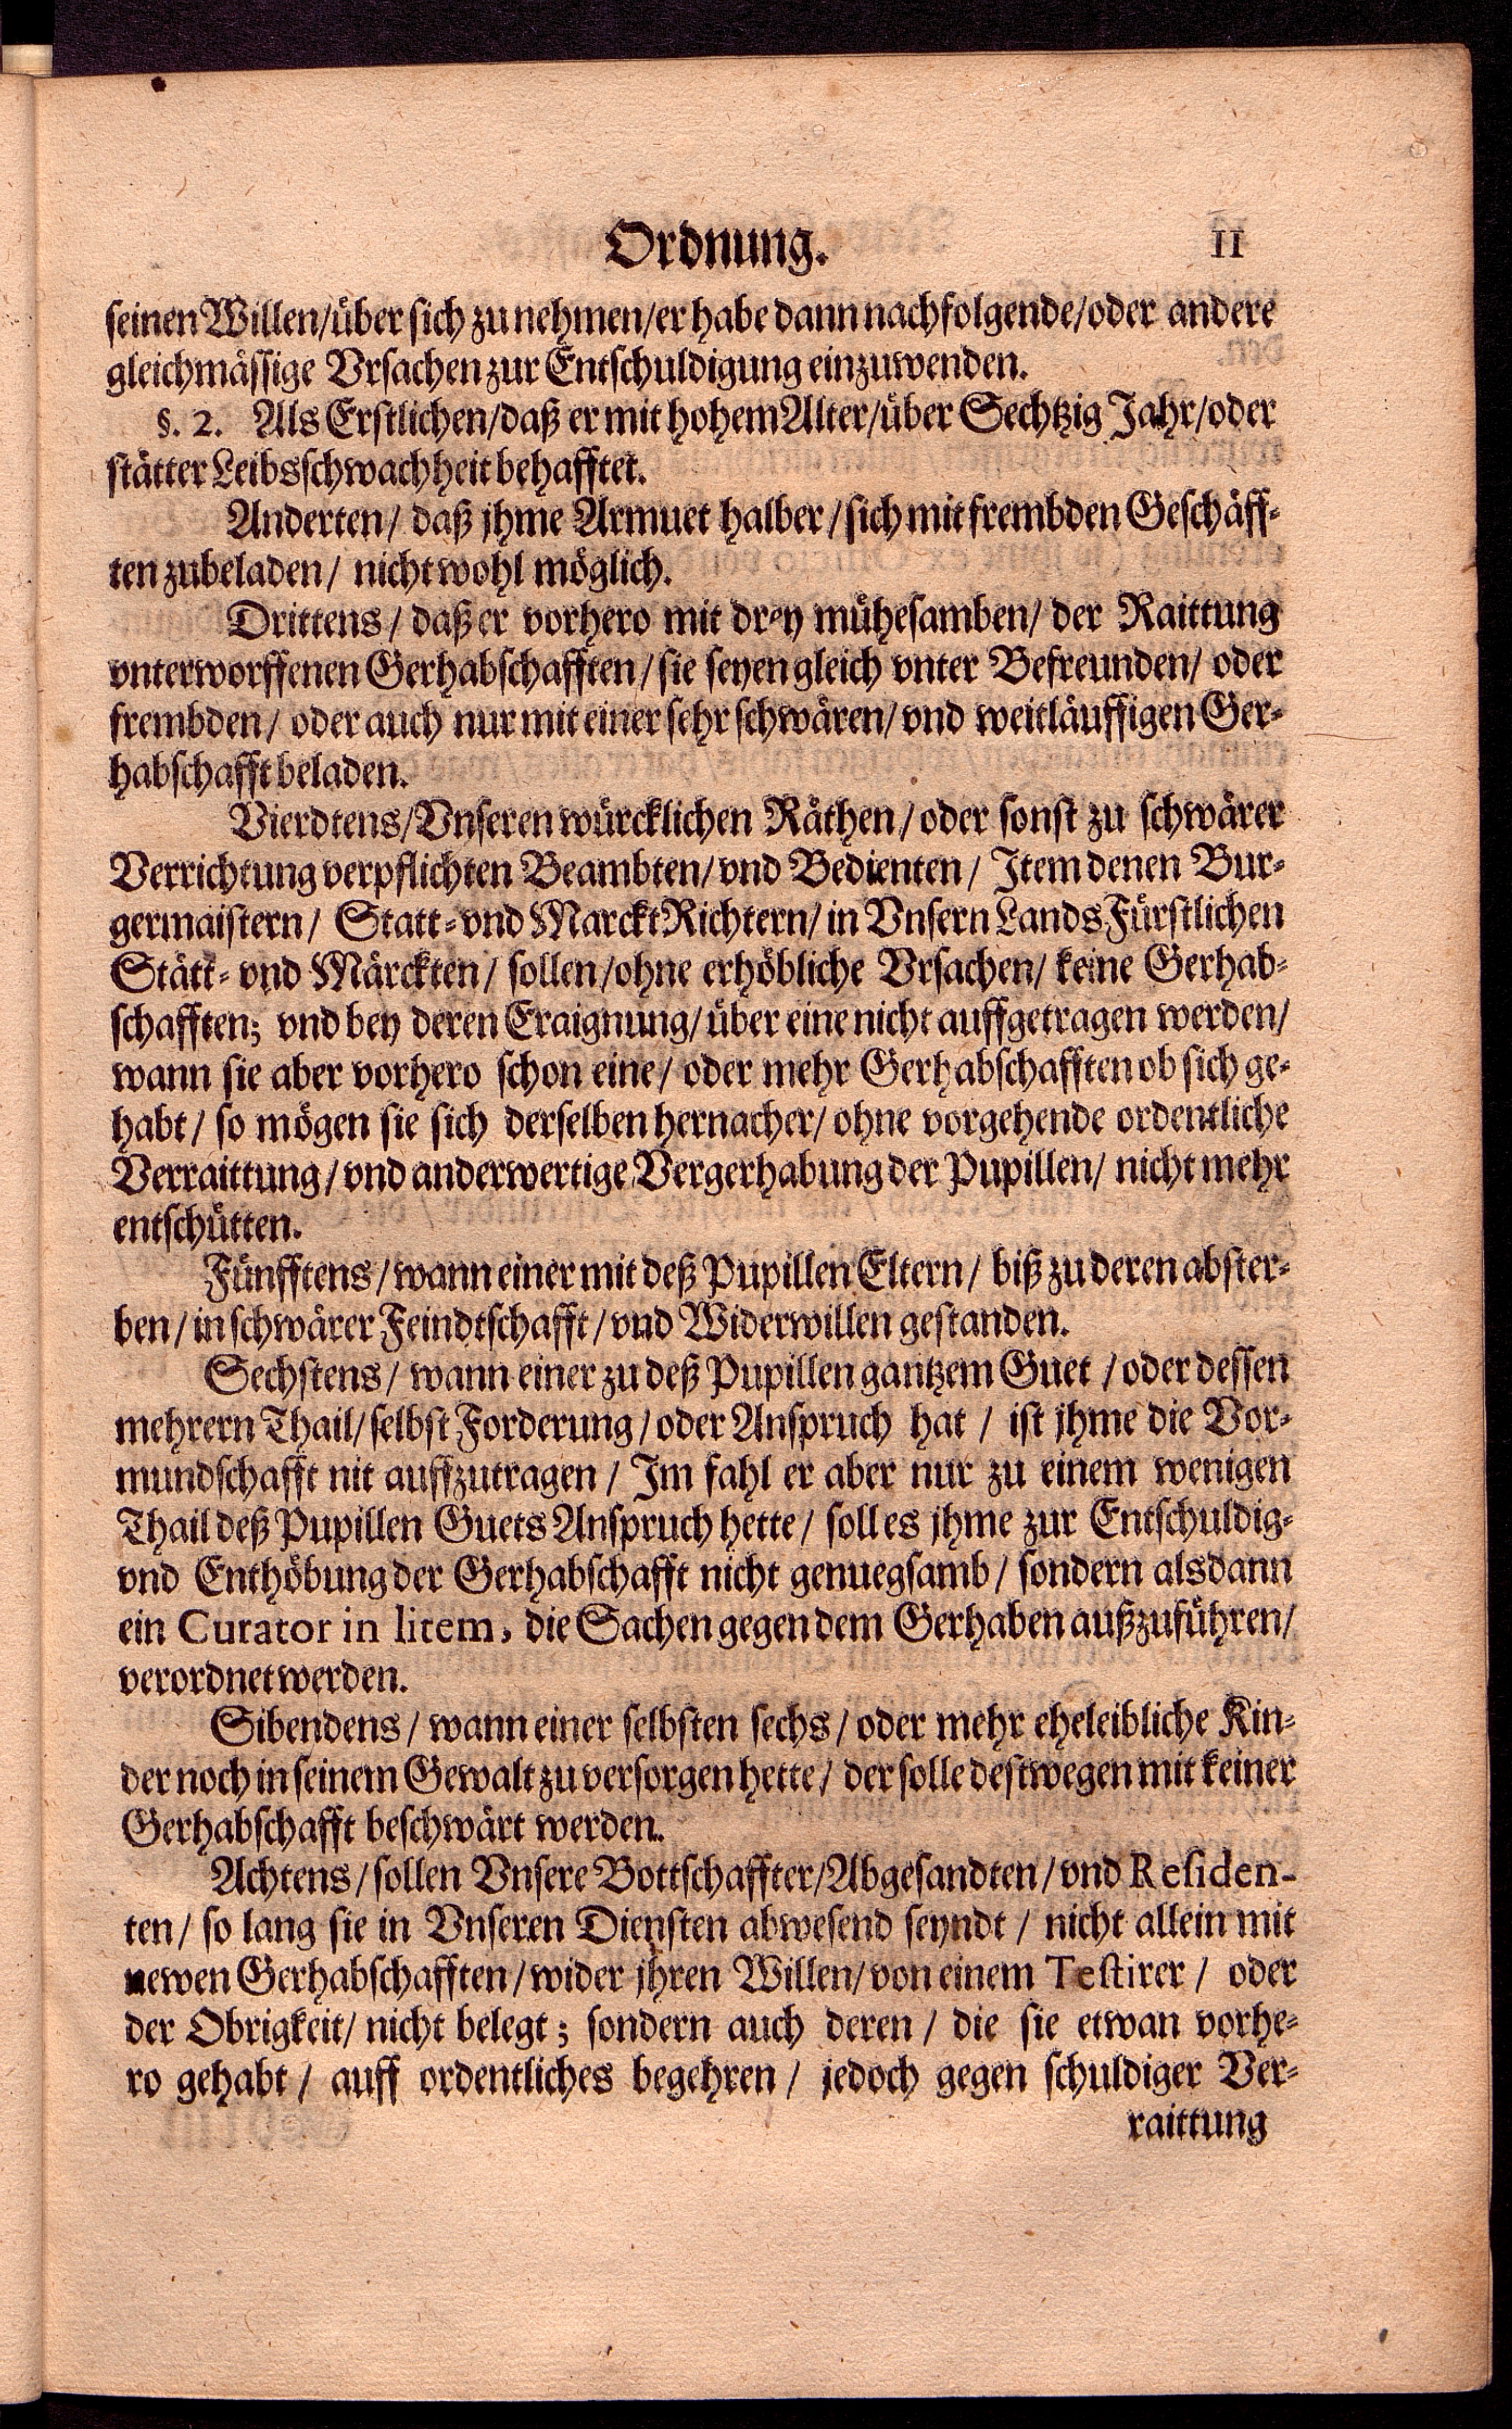 Ordnung. 11
seinen Willen/über sich zu nehmen/er habe dann nachfolgende/oder andere
gleichmässige Vrsachen zur Entschuldigung einzuwenden.
§. 2. Als Erstlichen/daß er mit hohem Alter/über Sechtzig Jahr/oder
stätter Leibsschwachheit behafftet.
Anderten/ daß jhme Armuet halber/sich mit frembden Geschäff-
ten zubeladen/ nicht wohl möglich.
Drittens/ daß er vorhero mit drey mühesamben/ der Raittung
vnterworffenen Gerhabschafften/sie seyen gleich vnter Befreunden/ oder
frembden/ oder auch nur mit einer sehr schwären/ vnd weitläuffigen Ger-
habschafft beladen.
Vierdtens/Vnseren würcklichen Räthen/oder sonst zu schwärer
Verrichtung verpflichten Beambten/vnd Bedienten/ Item denen Bur-
germaistern/ Statt-vnd Marckt Richtern/ in Vnsern Lands Fürstlichen
Stätt- vnd Märckten/ sollen/ohne erhöbliche Vrsachen/ keine Gerhab-
schafften; vnd bey deren Eraignung/über eine nicht auffgetragen werden/
wann sie aber vorhero schon eine/ oder mehr Gerhabschafften ob sich ge-
habt/ so mögen sie sich derselben hernacher/ ohne vorgehende ordentliche
Verraittung/vnd anderwertige Vergerhabung der Pupillen/ nicht mehr
entschütten.
Fünfftens/wann einer mit deß Pupillen Eltern/ biß zu deren abster-
ben/in schwärer Feindtschafft/vnd Widerwillen gestanden.
Sechstens/ wann einer zu deß Pupillen gantzem Guet/oder dessen
mehrern Thail/selbst Forderung/oder Anspruch hat/ ist jhme die Vor-
mundschafft nit auffzutragen/ Im fahl er aber nur zu einem wenigen
Thail deß Pupillen Guets Anspruch hette/ soll es jhme zur Entschuldig-
vnd Enthöbung der Gerhabschafft nicht genuegsamb/ sondern alsdann
ein Curator in litem, die Sachen gegen dem Gerhaben außzuführen/
verordnet werden.
Sibendens/ wann einer selbsten sechs/ oder mehr eheleibliche Kin-
der noch in seinem Gewalt zu versorgen hette/ der solle destwegen mit keiner
Gerhabschafft beschwärt werden.
Achtens/sollen Vnsere Bottschaffter/Abgesandten/vnd Residen-
ten/ so lang sie in Vnseren Diensten abwesend seyndt/ nicht allein mit
newen Gerhabschafften/wider jhren Willen/von einem Testirer/ oder
der Obrigkeit/ nicht belegt; sondern auch deren/ die sie etwan vorhe-
ro gehabt/ auff ordentliches begehren/ jedoch gegen schuldiger Ver-
raittung